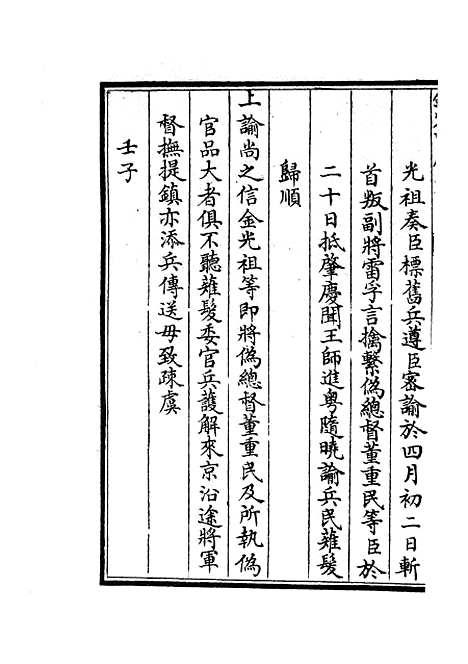 光祖奏臣標舊兵遵臣密諭於四月初二日斬
首叛副將雷孚言擒繫偽總督董重民等臣於
二十日抵肇慶聞王師進粤隨曉諭兵民薙髮
歸順
上諭尚之信金光祖等即將偽總督董重民及所執偽
官品大者俱不聽薙髮委官兵護解來京沿途將軍
督撫提鎮亦添兵傳送毋致疎虞
壬子